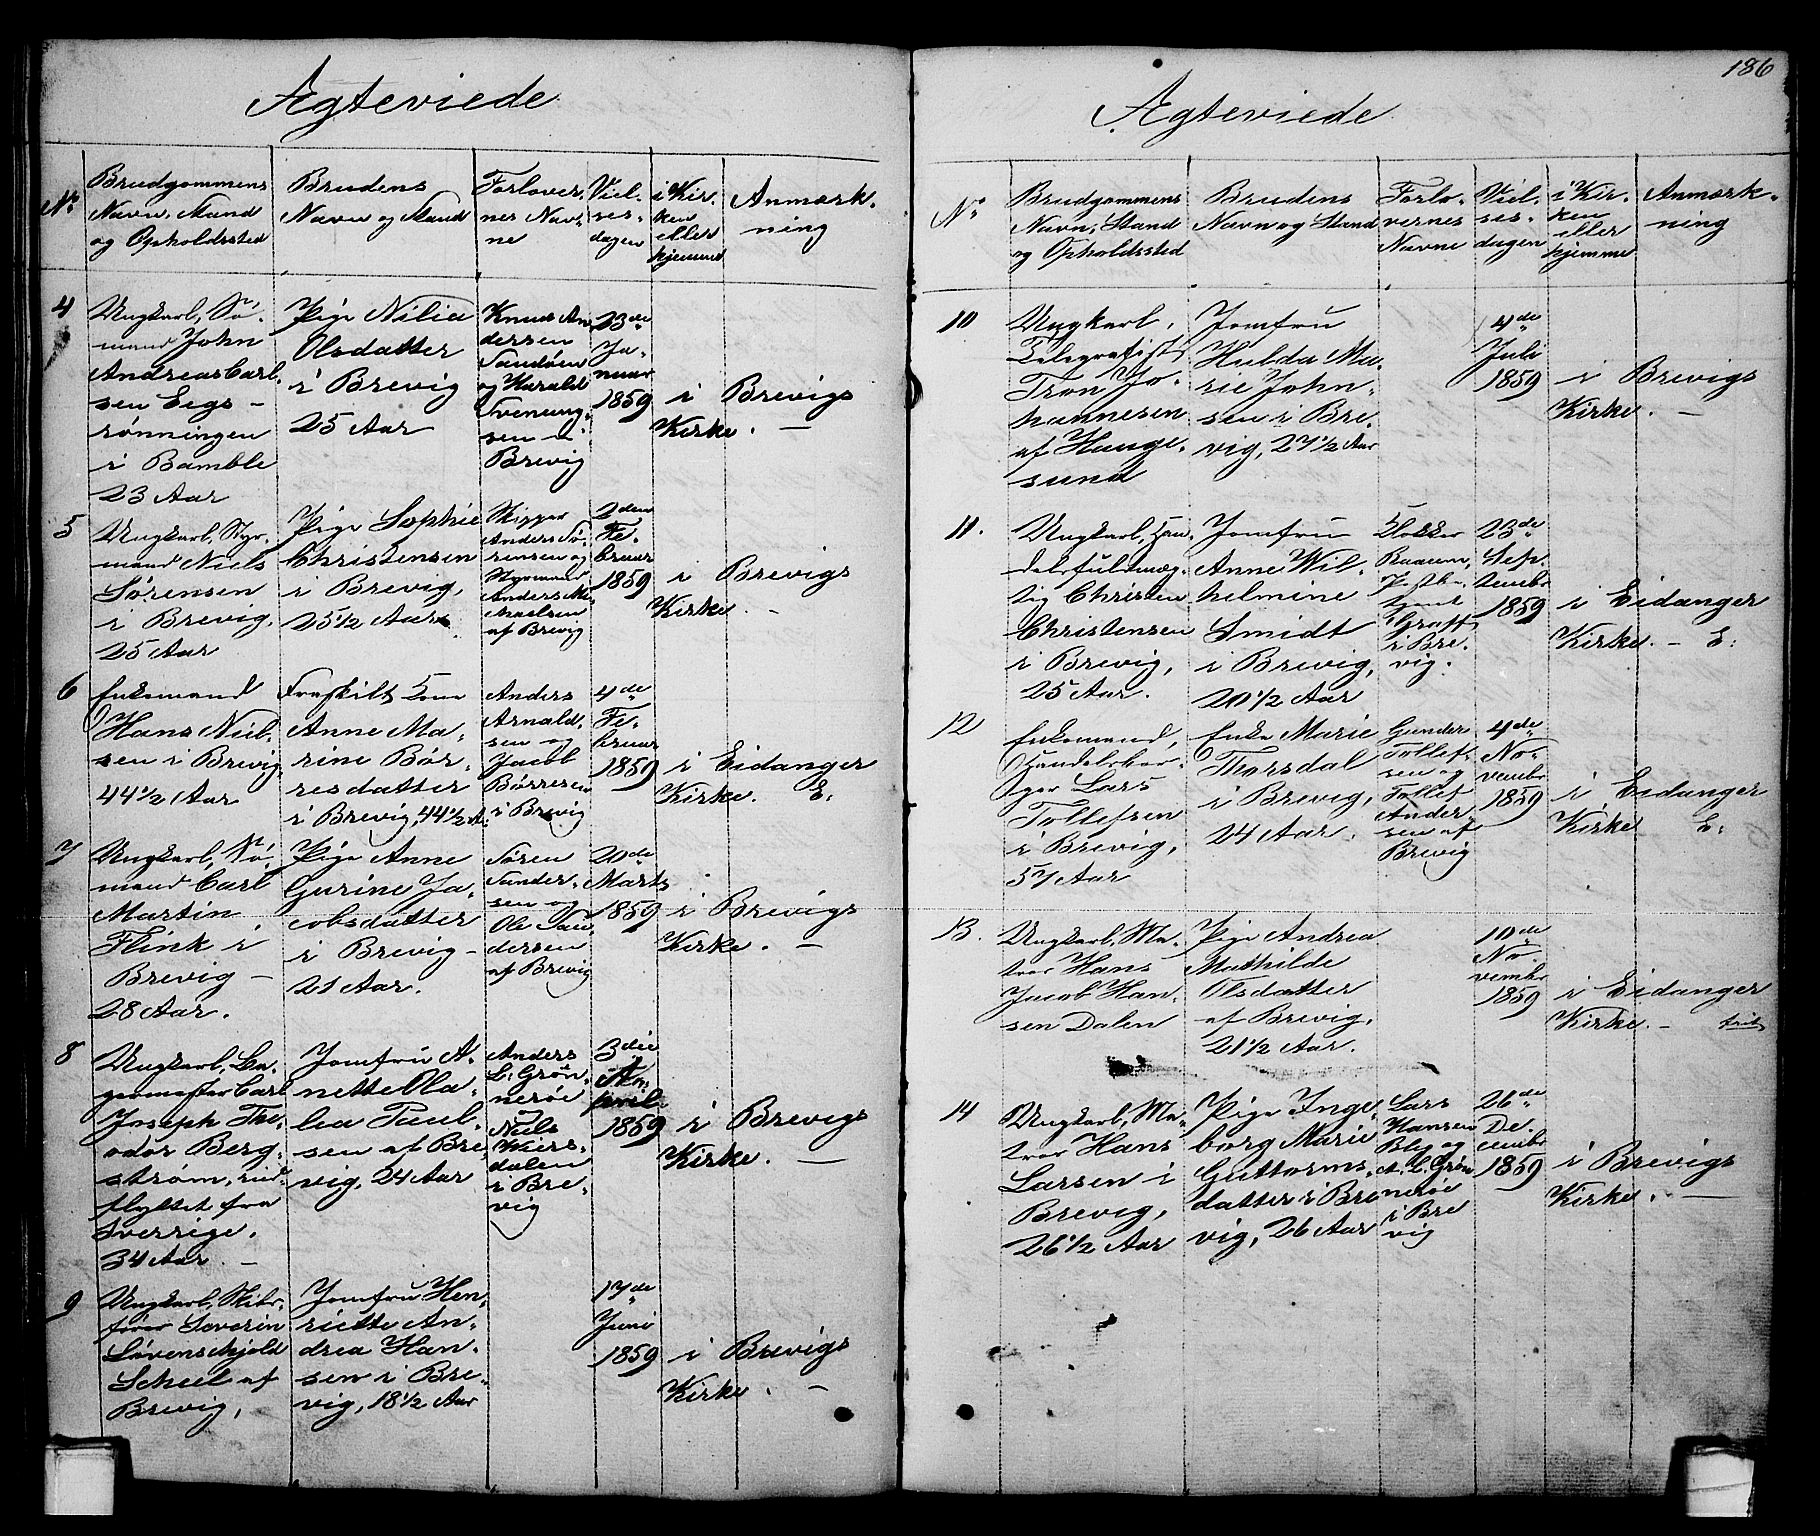 Ægteviede
No
Brudgommens
Navn, Stand
og Opholdssted
Brudens
Navn og Stand
Forlover-
nes Nav-
ne
Viel-
ses-
dagen
i Kir-
ken
eller
hjemme
Anmærk-
ning
4
Ungkarl, Sø-
mand John
Andreas Carl-
sen Eegs-
rønningen
i Bamble
23 Aar
Pige Nilia
Olsdatter
i Brevig
25 Aar
Knud An-
dersen
Sandøen
og Harald
Svenung-
sen i
Brevig
23de
Ja-
nuar
1859
i Brevigs
Kirke. —
5
Ungkarl, Styr-
mand Niels
Sørensen
i Brevig,
25 Aar
Pige Sophie
Christensen
i Brevig,
25 1/2 Aar
Skipper
Anders Sø-
rensen og
Styrmand
Anders Mi-
kaelsen
af Brevig
2den
Fe-
bruar
1859
i Brevigs
Kirke. -
6
Enkemand
Hans Niel-
sen i Brevig
44 1/2 Aar
Fraskilt Kone
Anne Ma-
rine Bør-
resdatter
i Brevig, 44 1/2 A.
Anders
Arnald-
sen og
Jacob
Børresen
i Brevig
4de
Fe-
bruar
1859
i Eidanger
Kirke. E:
7
Ungkarl, Sø-
mand Carl
Martin
Flink i
Brevig -
28 Aar.
Pige Anne
Gurine Ja-
cobsdatter
i Brevig -
21 Aar.
Søren
Sunder-
sen og
Ole San-
dersen
af Brevig
20de
Marts
1859
i Brevigs
Kirke. —
8
Ungkarl, Ba-
germester Carl
Joseph The-
odor Berg-
strøm, ind-
flyttet fra
Sverrige.
34 Aar. —
Jomfru A-
nette Ola-
lea Paul-
sen af Bre-
vig, 24 Aar
Anders
L: Grøn-
nerøe
Niels
Wiers-
dalen
i Bre-
vig
3die
Ap-
pril
1859
i Brevigs
Kirke. —
9
Ungkarl, Skibs-
fører Severin
Løvenskjold
Scheel af
Brevig,
Jomfru Hen-
riette An-
drea Han-
sen i Bre-
vig, 18 1/2 Aar
17de
Juni
1859
i Brevigs
Kirke. -
186
Ægteviede
No
Brudgommens
Navn, Stand
og Opholdssted
Brudens
Navn og Stand
Forlo-
vernes
Navne
Viel-
ses-
dagen
i Kir-
ken
eller
hjemme
Anmærk-
ning
10
Ungkarl,
Telegrafist
Tron Jo-
hannesen
af Hauge-
sund
Jomfru
Hulda Ma-
rie John-
sen i Bre-
vig, 27 1/2 Aar
4de
Juli
1859
i Brevigs
Kirke. —
11.
Ungkarl, Han-
delsfuldmæg-
tig Christen
Christensen
i Brevig,
25 Aar.
Jomfru
Anne Wil-
helmine
Smidt
i Brevig,
20 1/2 Aar
Klokker
Graff
i Bre-
vig.
23de
Sep-
tembr
1859
i Eidanger
Kirke. — E:
12
Enkemand,
Handelsbor-
ger Lars
Tollefsen
i Brevig,
57 Aar
Enke Marie
Thorsdal
i Brevig,
24 Aar.
Gunder
Tollef-
sen og
Tollef
Ander-
sen af
Brevig
4de
No-
vembr
1859
i Eidanger
Kirke E:
13.
Ungkarl, Ma-
tros Hans
Jacob Han-
sen Dalen
Pige Andrea
Mathilde
Olsdatter
af Brevig,
21 1/2 Aar.
10de
No-
vembr
1859
i Eidanger
Kirke. -
14
Ungkarl, Ma-
tros Hans
Larsen i
Brevig,
26 1/2 Aar
Pige Inge-
borg Marie
Guttorms-
datter i Bre-
vig, 26 Aar
Lars
Hansen
Bleg og
A. L. Grøn-
nerøe
i Bre
vig
26de
De-
cembr
1859
i Brevigs
Kirke. —